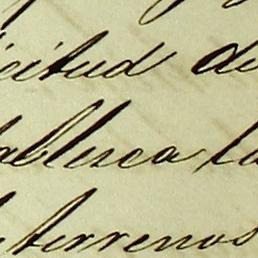 icitud de
tablesca la
terrenos